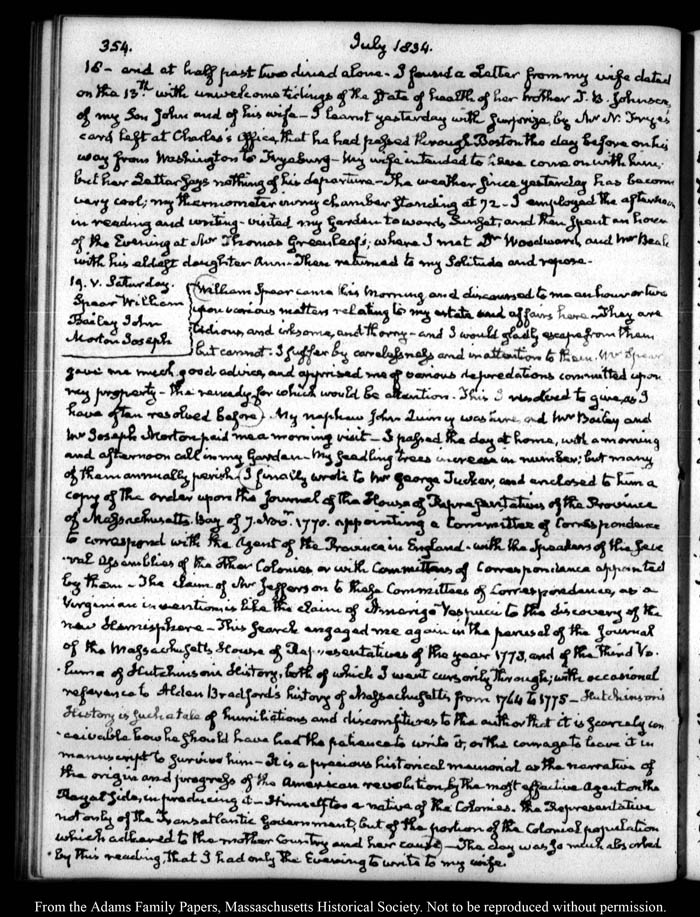 354. July 1834.
18 - and at half past two dined alone - I found a Letter from my wife dated
on the 13th with unwelcome tidings of the State of health of her brother T. B. Johnson,
of my Son John and of his wife - I learnt yesterday with surprize, by Mr N. Frye's
card left at Charles's Office, that he had passed through Boston the day before on his
way from Washington to Fryeburg - My wife intended to have come on with him;
but her Letter says nothing of his departure - The weather since yesterday has become
very cool; my thermometer in my chamber standing at 72 - I employed the afternoon
in reading and writing - visited my Garden towards Sunset, and then spent an hour
of the Evening at Mr Thomas Greenleaf's; where I met Dr Woodward, and Mr Beale
with his eldest daughter Ann - Then returned to my Solitude and repose -
19. V. Saturday.
Spear William
Bailey John
Morton Joseph
William Spear came this morning and discoursed to me an hour or two
upon various matters relating to my estate and affairs here - They are
tedious, and irksome, and thorny - and I would gladly escape from them
but cannot. I suffer by carelessness and inattention to them. Mr Spear
gave me much good advice, and apprised me of various depredations committed upon
my property - the remedy for which would be attention. This I resolved to give, as I
have often resolved before. My nephew John Quincy was here, and Mr Bailey and
Mr Joseph Morton paid me a morning visit - I passed the day at home, with a morning
and afternoon call in my Garden - My seedling trees increase in number; but many
of them annually perish. I finally wrote to Mr George Tucker, and enclosed to him a
copy of the order upon the Journal of the House of Representatives of the Province
of Massachusetts Bay of 7. Novr. 1770. appointing a Committee of Correspondence
to correspond with the Agent of the Province in England - with the Speakers of the seve
-ral Assemblies of the other Colonies or with Committees of Correspondence appointed
by them - The claim of Mr Jefferson to these Committees of Correspondence, as a
Virginian invention is like the claim of Amerigo Vespucci to the discovery of the
new Hemisphere - This search engaged me again in the perusal of the Journal
of the Massachusetts House of Representatives of the year 1773, and of the third Vo-
lume of Hutchinson's History, both of which I went cursorily through; with occasional
reference to Alden Bradford's history of Massachusetts from 1764 to 1775 - Hutchinson's
History is such a tale of humiliations and discomfitures to the author that it is scarcely con
-ceivable how he should have had the patience to write it, or the courage to leave it in
manuscript to survive him - It is a precious historical memorial as the narrative of
the origin and progress of the American revolution, by the most effective Agent on the
Royal side, in producing it - Himself too a native of the Colonies. the Representative
not only of the Transatlantic Government; but of the portion of the Colonial population
which adhered to the mother Country and her cause - The day was so much absorbed
by this reading, that I had only the Evening to write to my wife.
From the Adams Family Papers, Massachusetts Historical Society. Not to be reproduced without permission.